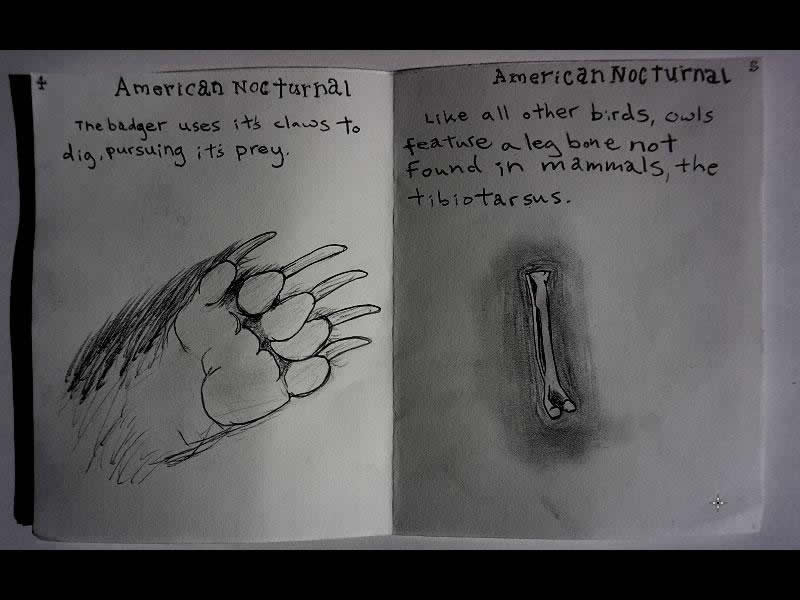 4
American Nocturnal
The badger uses it's claws to
dig, pursuing it's prey.
5
American Nocturnal
Like all other birds, owls
feature a leg bone not
found in mammals, the
tibiotarsus.